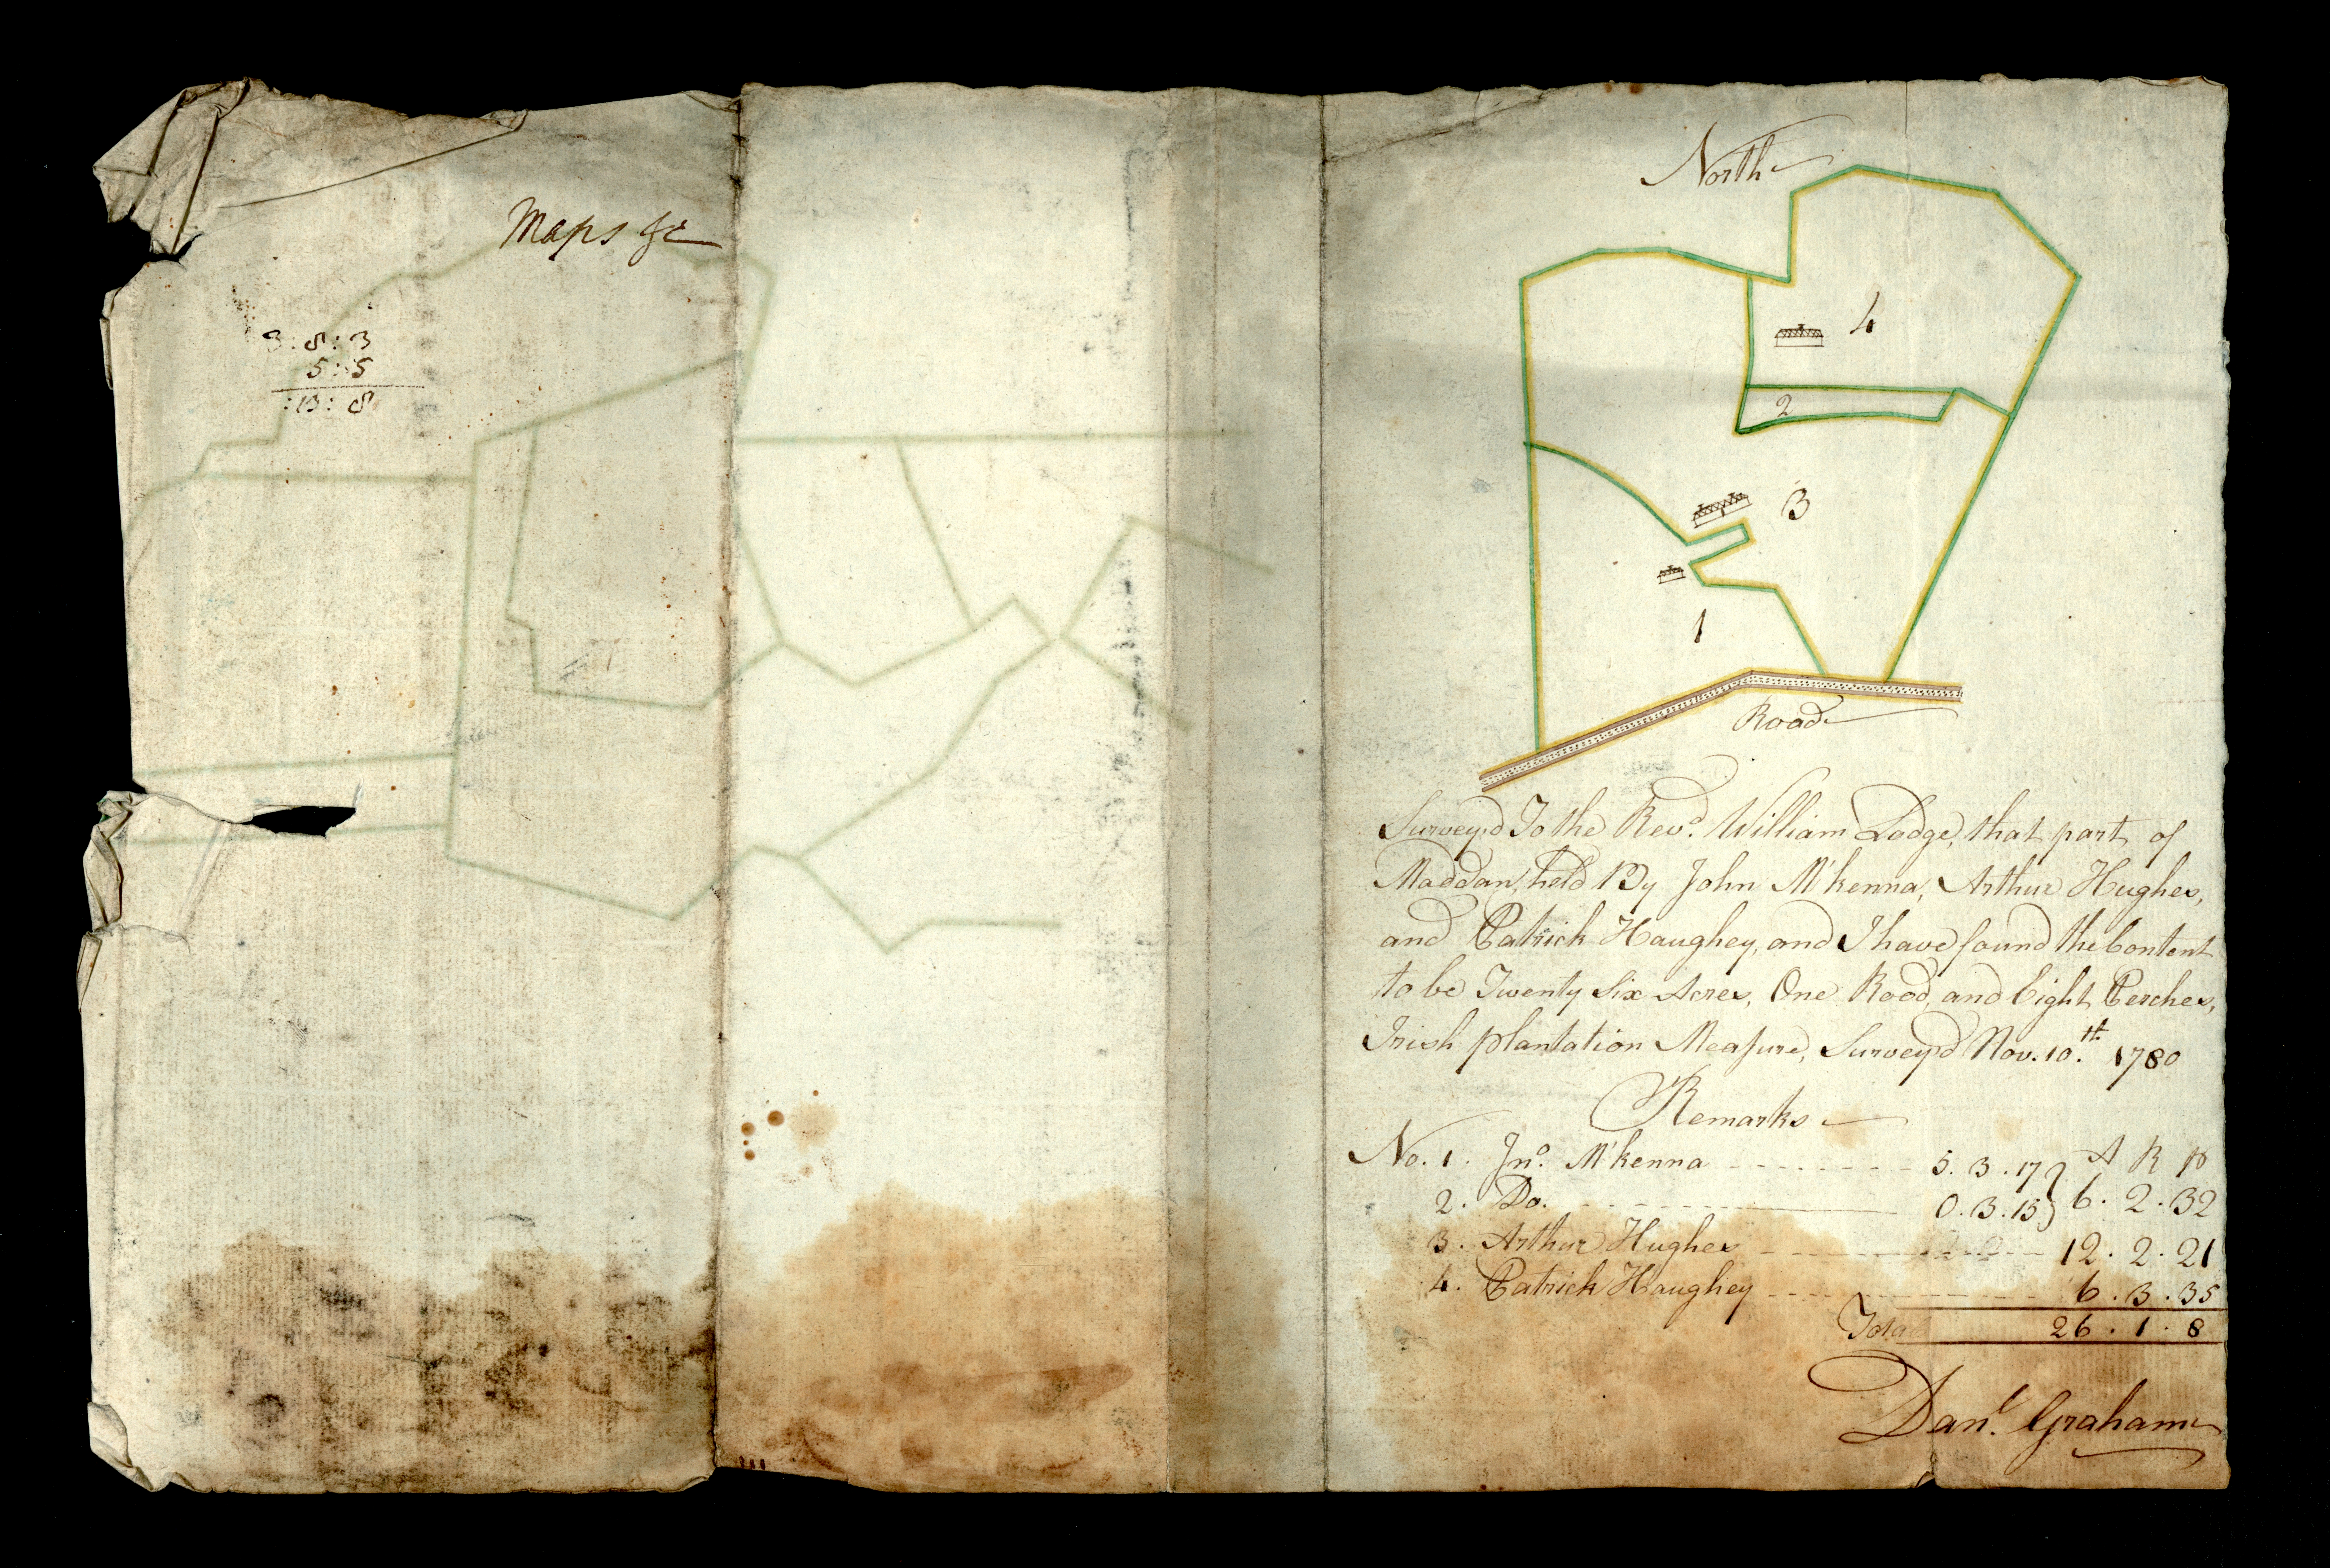 Maps &c
3:8:3
5:5
:13:8
North
4
2
3
1
Road
Survey'd To the Revd. William Lodge, that part of
Maddan, held By John M'kenna, Arthur Hughes,
and Patrick Haughey, and I have found the Content
to be Twenty Six Acres, One Rood, and Eight Perches,
Irish plantation Measure, Survey'd Nov. 10.th 1780
Remarks
A R P
No. 1. Jno. M'kenna 5.3.17
2. Do. 0.3.15 } 6.2.32
3. Arthur Hughes 12.2.21
4. Patrick Haughey 6.3.35
Total 26.1.8
Danl. Graham